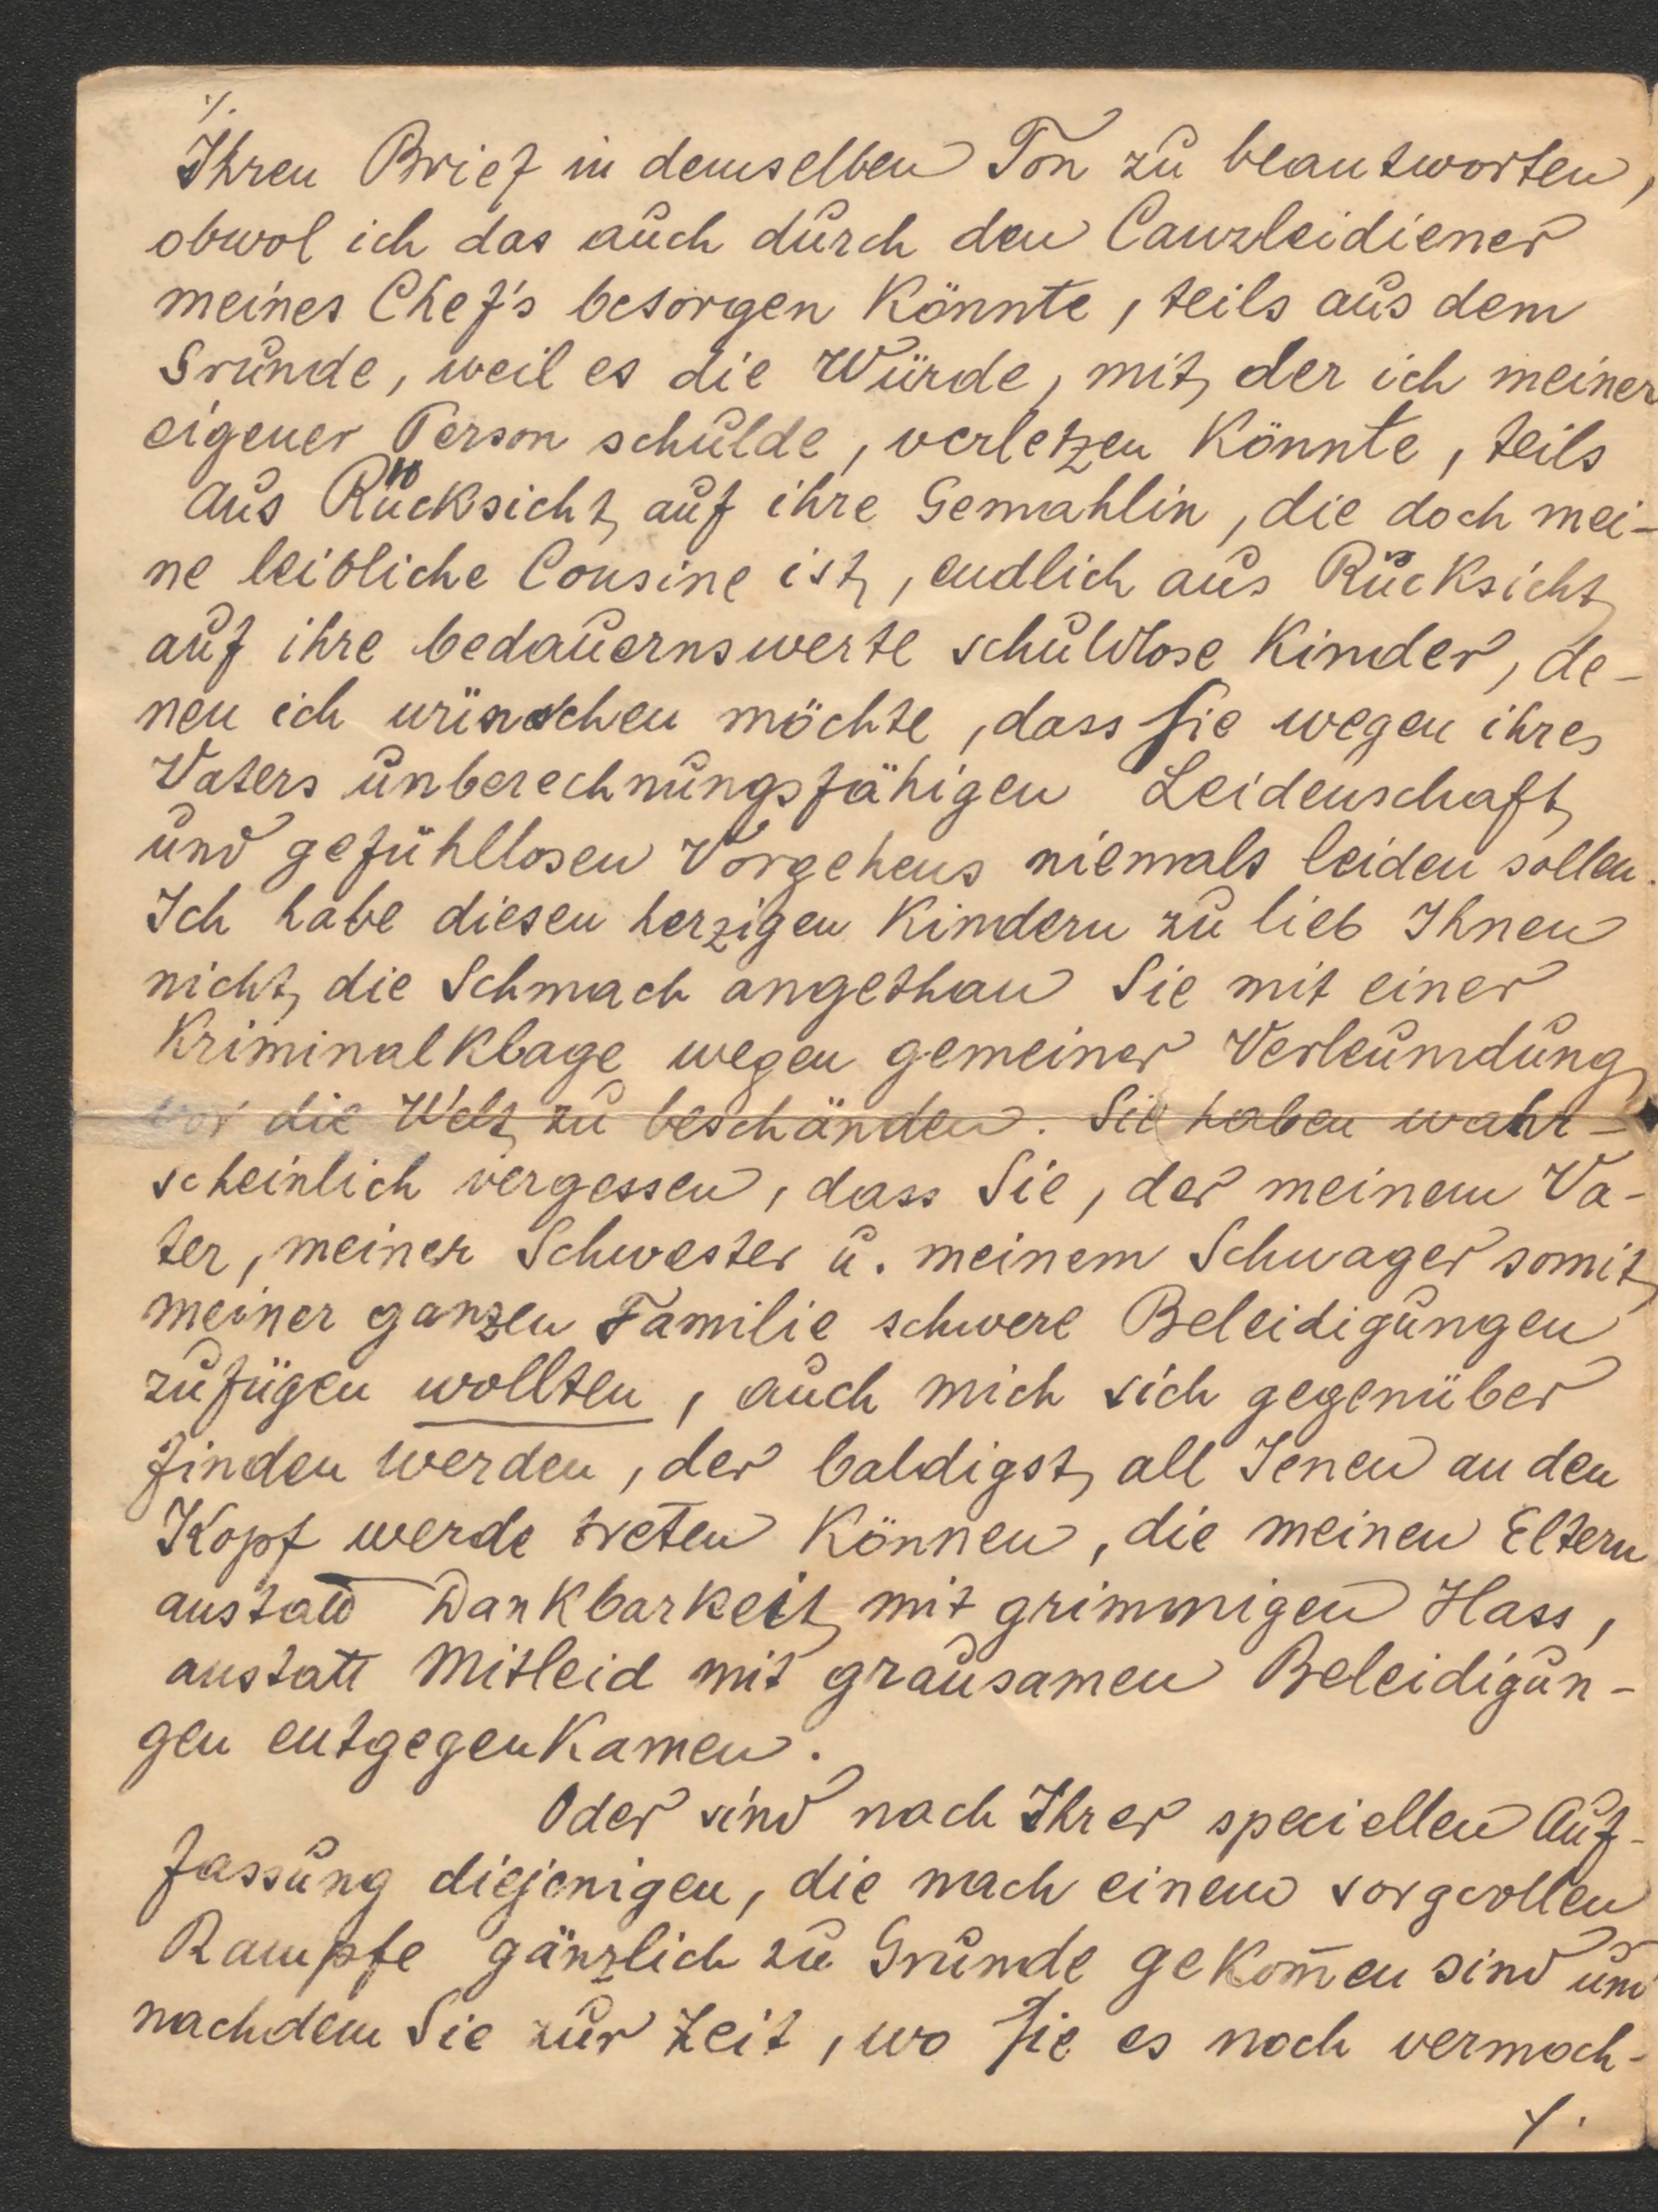 ./.
Ihren Brief in demselben Ton zu beantworten,
obwol ich das auch durch den Canzleidiener
meines Chef's besorgen könnte, teils aus dem
Grunde, weil es die Würde, mit der ich meiner
eigener Person schulde, verletzen könnte, teils
aus Rücksicht auf ihre Gemahlin, die doch mei-
ne leibliche Cousine ist, endlich aus Rücksicht
auf ihre bedauernswerte schuldlose Kinder, de-
nen ich wünschen möchte, dass sie wegen ihres
Vaters unberechnungsfähigen Leidenschaft
und gefühllosen Vorgehens niemals leiden sollen.
Ich habe diesen herzigen Kindern zu lieb Ihnen
nicht die Schmach angethan Sie mit einer
Kriminalklage wegen gemeiner Verleumdung
vor die Welt zu beschänden. Sie haben wahr-
scheinlich vergessen, dass Sie, der meinem Va-
ter, meiner Schwester u. meinem Schwager somit
meiner ganzen Familie schwere Beleidigungen
zufügen wollten, auch mich sich gegenüber
finden werden, der baldigst all Jenen an den
Kopf werde treten können, die meinen Eltern
anstatt Dankbarkeit mit grimmigen Hass,
anstatt Mitleid mit grausamen Beleidigun-
gen entgegenkamen.
Oder sind nach Ihrer speciellen Auf-
fassung diejenigen, die nach einem sorgvollen
Kampfe gänzlich zu Grunde gekom̄en sind und
nachdem Sie zur Zeit, wo sie es noch vermoch-
./.